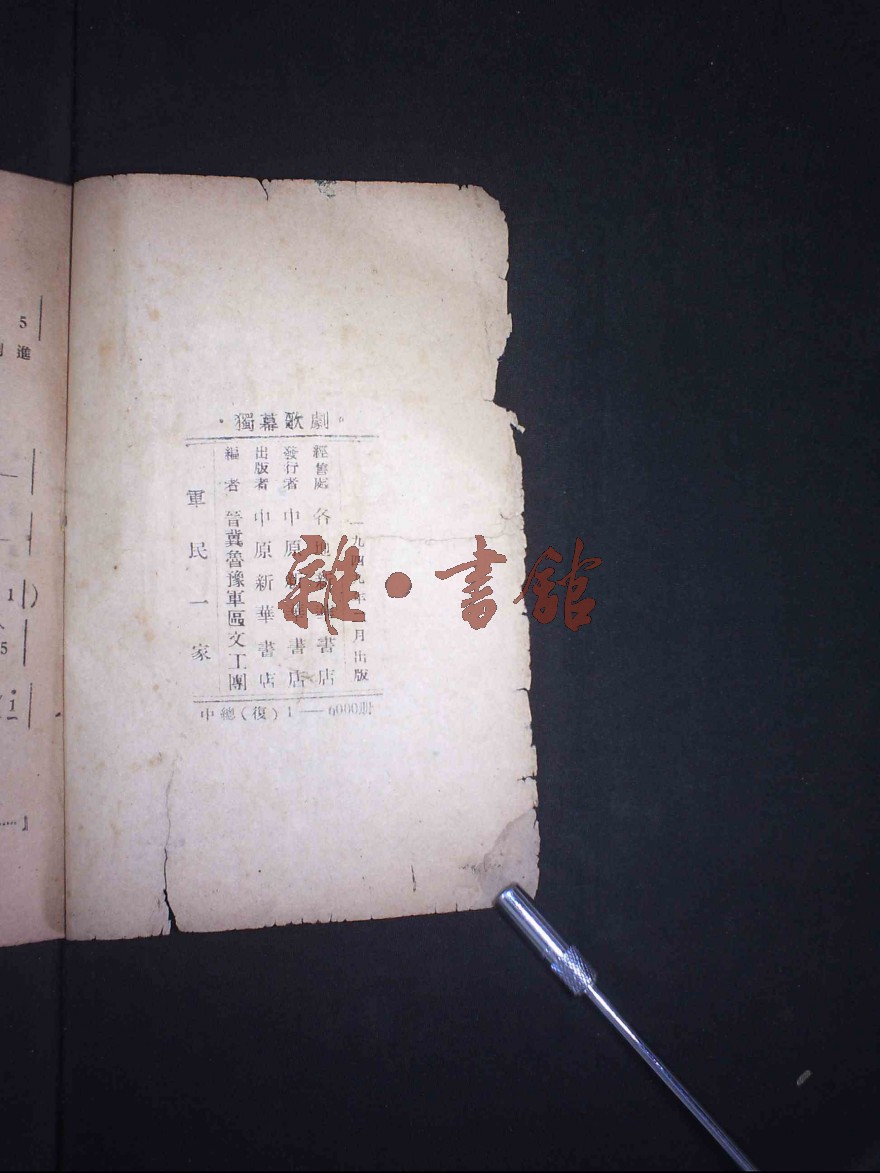 ·獨幕歌劇。
軍民一家
編者 晉冀魯豫軍區文工團
出版者 中原新華書店
發行者 中原新華書店
經售處 各地新華書店
一九四九年 月出版
中總(復)1—6000册
雜·書館
5
進
1)
5
i
……』